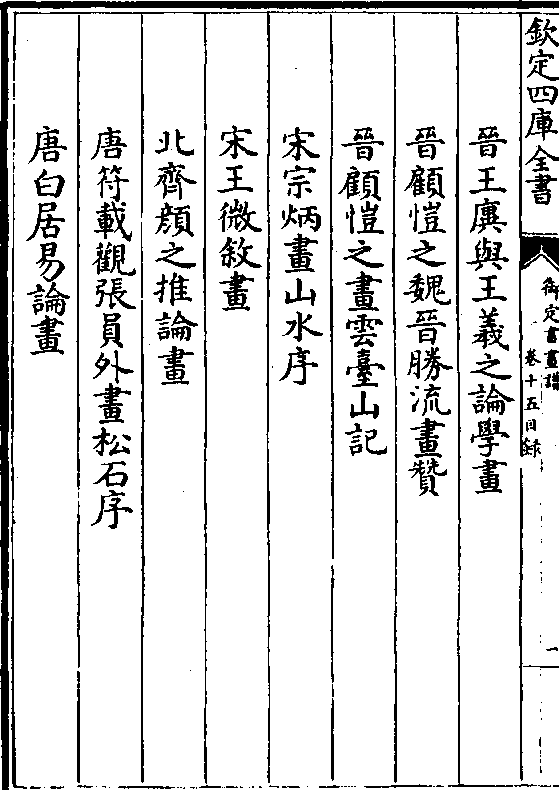 欽定四庫全書
御定書畫譜
卷十五目録
一
晉王廙與王羲之論學畫
晉顧愷之魏晉勝流畫贊
晉顧愷之畫雲臺山記
宋宗炳畫山水序
宋王微敘畫
北齊顔之推論畫
唐符載觀張員外畫松石序
唐白居易論畫